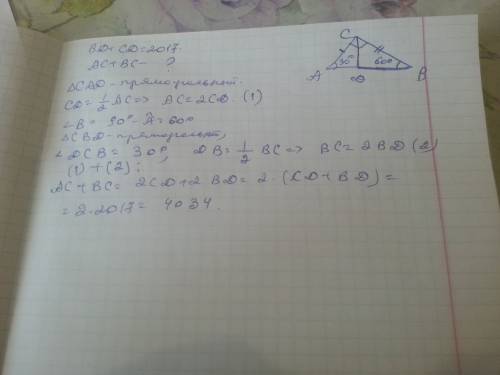 BD+CD=2017.
AC+BC - ?
△CAD - прямоугольный.
CD = 1/2 AC => AC = 2CD. (1)
∠B = 90° - A = 60°
△CBD - прямоугольн,
∠DCB = 30°, DB = 1/2 BC => BC = 2BD (2)
(1) + (2):
AC + BC = 2CD + 2BD = 2·(CD + BD) =
= 2·2017 = 4034.
C
30° 60°
A D B